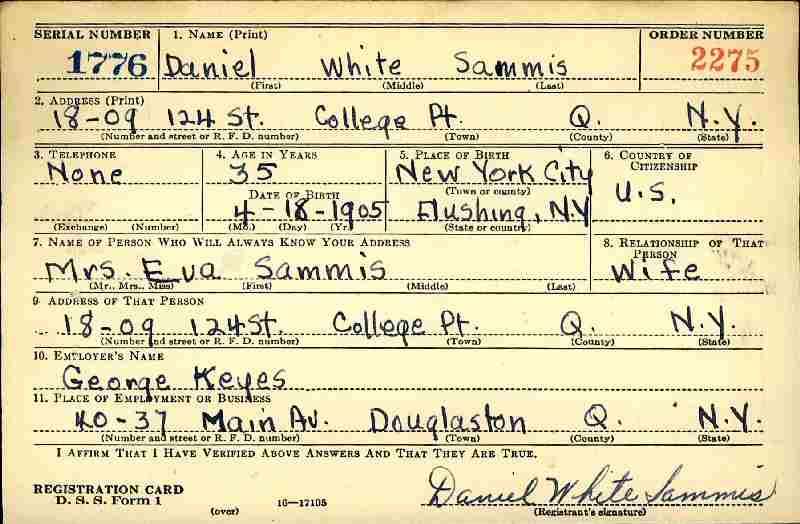 SERIAL NUMBER 1. NAME (Print) ORDER NUMBER
1776 Daniel White Sammis 2275
(First) (Middle) (Last)
2. ADDRESS (Print)
18-09 124 St. College Pt. Q. N.Y.
(Number and street or R. F. D. number) (Town) (County) (State)
3. TELEPHONE 4. AGE IN YEARS 5. PLACE OF BIRTH 6. COUNTRY OF CITIZENSHIP
None 35 New York City U.S.
DATE OF BIRTH (Town or county)
4-18-1905 Flushing, N.Y
(Exchange) (Number) (Mo.) (Day) (Yr.) (State or country)
7. NAME OF PERSON WHO WILL ALWAYS KNOW YOUR ADDRESS 8. RELATIONSHIP OF THAT PERSON
Mrs. Eva Sammis Wife
(Mr., Mrs., Miss) (First) (Middle) (Last)
9. ADDRESS OF THAT PERSON
18-09 124 St. College Pt. Q. N.Y.
(Number and street or R. F. D. number) (Town) (County) (State)
10. EMPLOYER'S NAME
George Keyes
11. PLACE OF EMPLOYMENT OR BUSINESS
40-37 Main Av. Douglaston Q. N.Y.
(Number and street or R. F. D. number) (Town) (County) (State)
I AFFIRM THAT I HAVE VERIFIED ABOVE ANSWERS AND THAT THEY ARE TRUE.
REGISTRATION CARD
D. S. S. Form 1 16-17105 Daniel White Sammis
(over) (Registrant's signature)